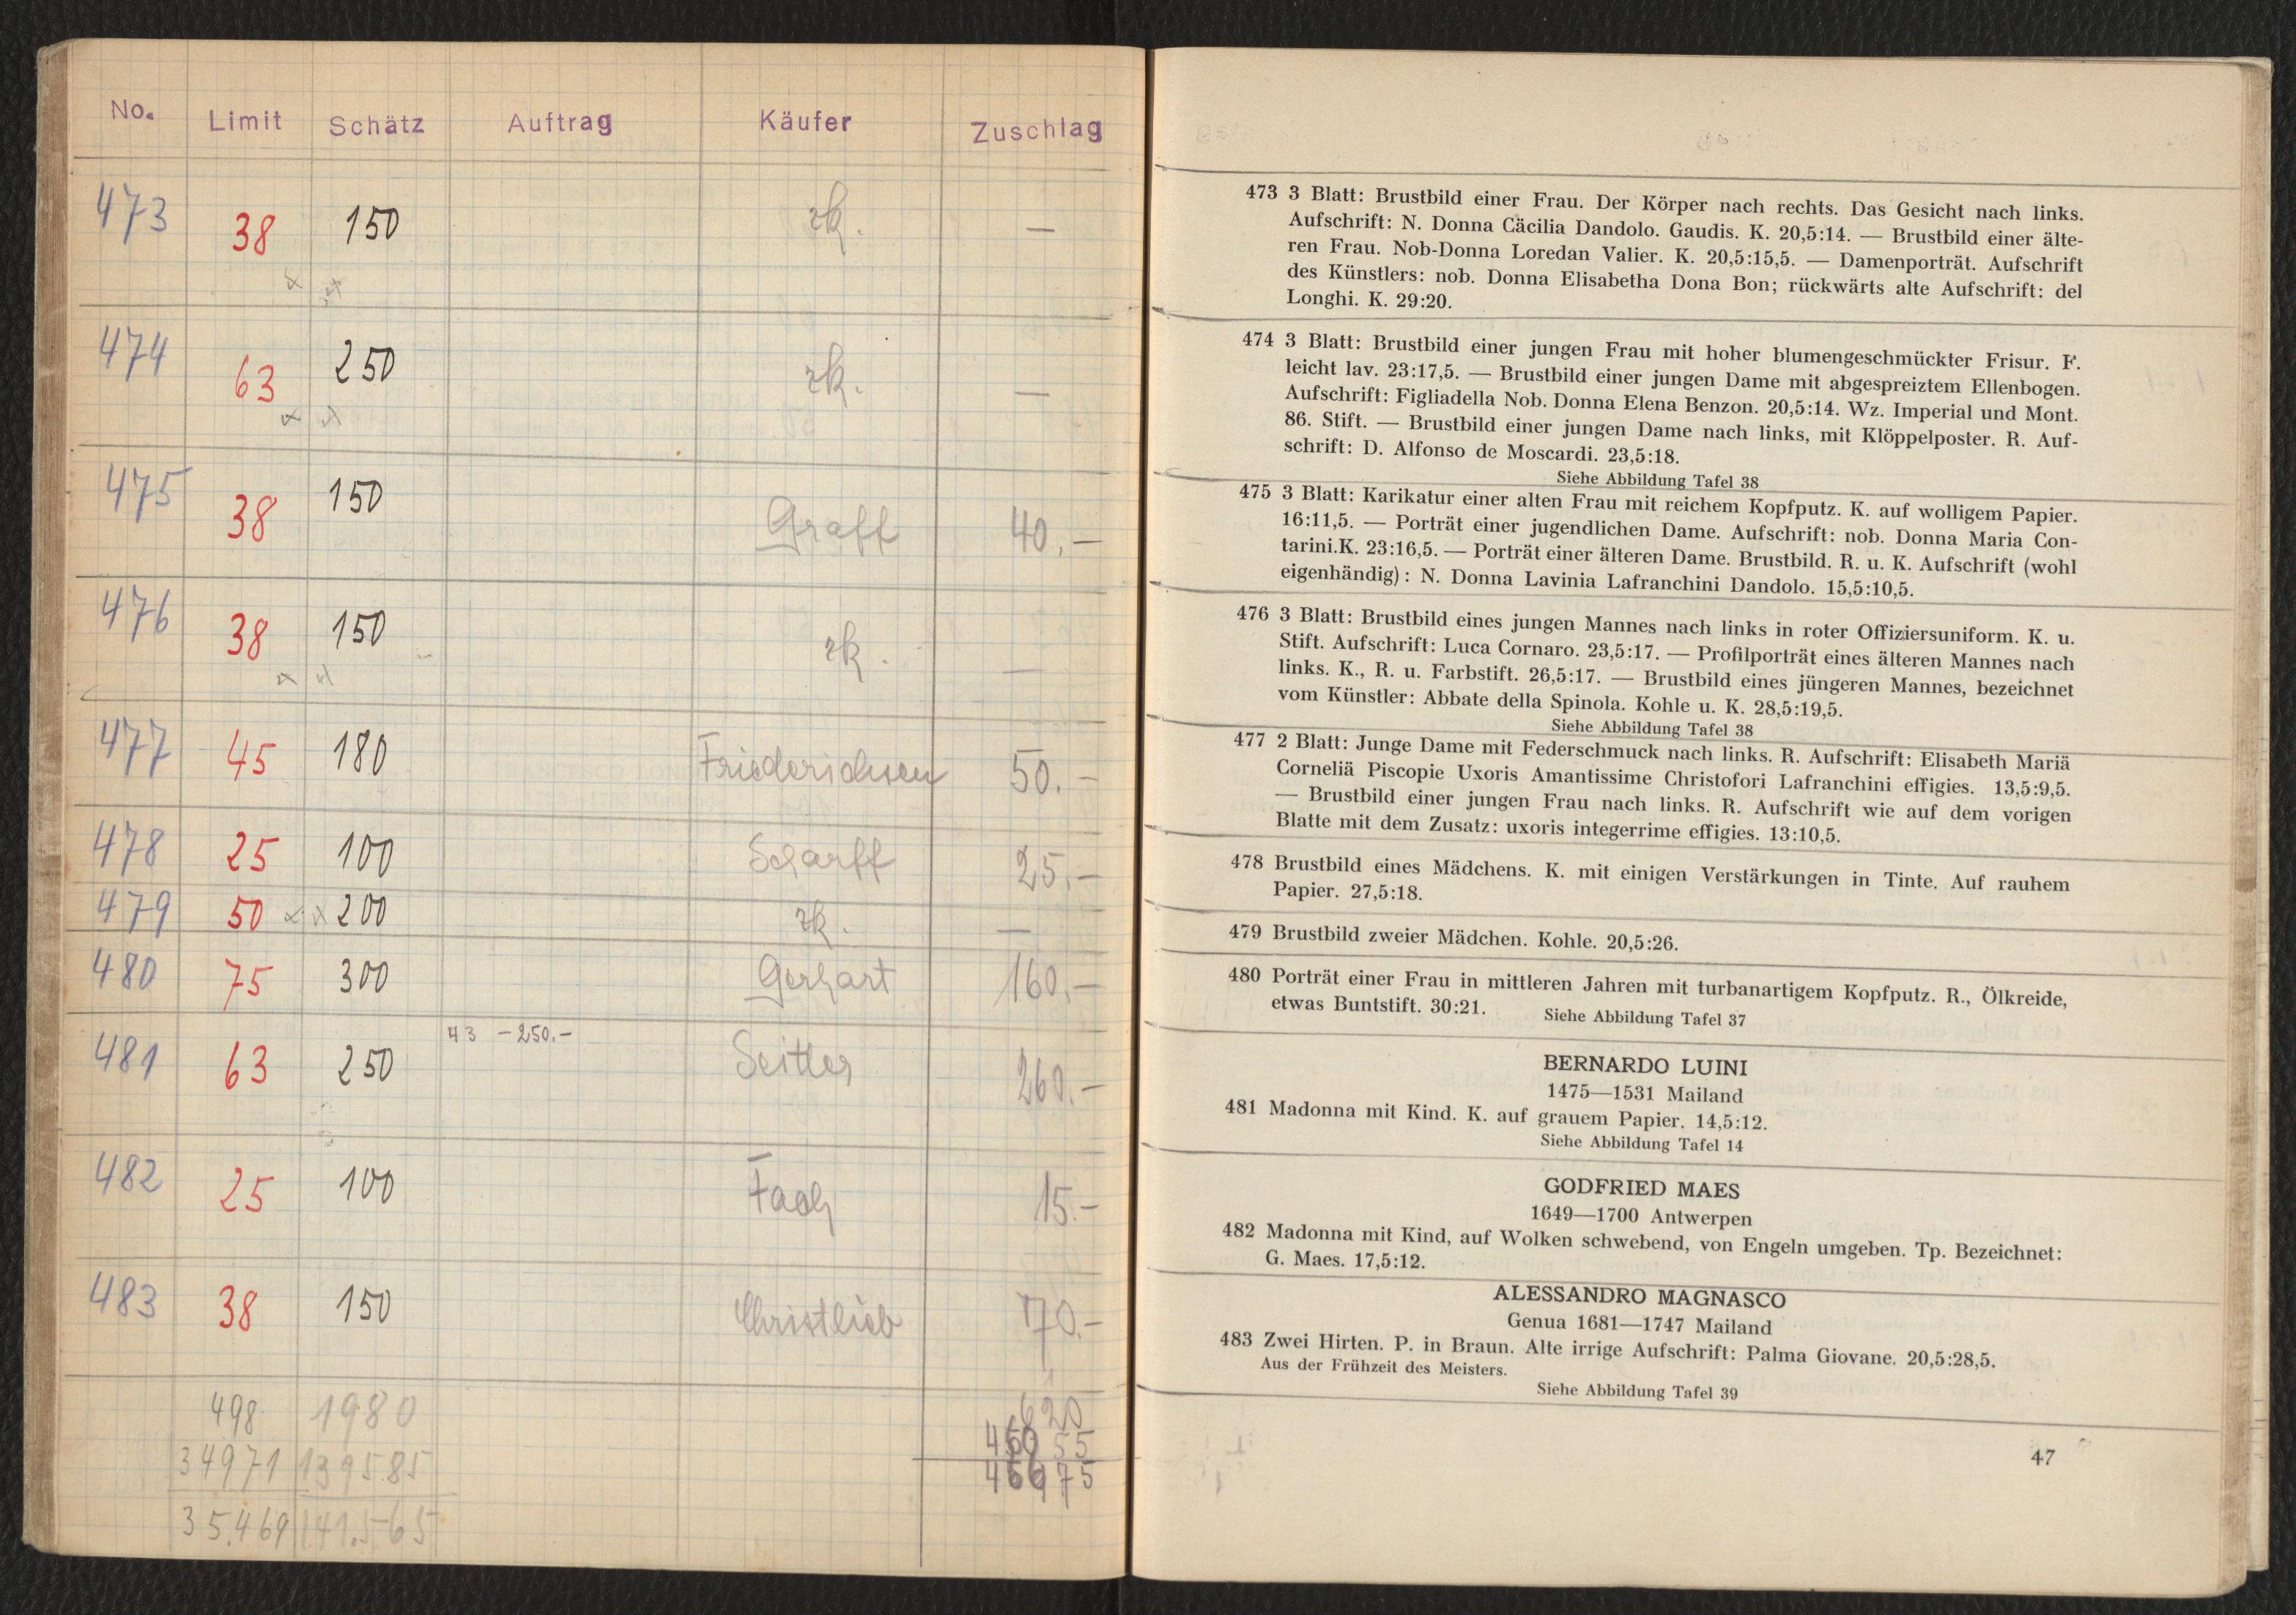 No. Limit Schätz Auftrag Käufer Zuschlag
473 38 150 rk. —
474 63 250 rk. —
475 38 150 Graff 40.—
476 38 150 rk. —
477 45 180 Friederichsen 50.—
478 25 100 Scharff 25.—
479 50 200 rk. —
480 75 300 Gerhart 160.—
43 – 250.–
481 63 250 Seitler 260.—
482 25 100 Fach 15.—
483 38 150 Christlieb 70.—
498 1980 620
34971 139585
46675
35.469 141.565
473 3 Blatt: Brustbild einer Frau. Der Körper nach rechts. Das Gesicht nach links.
Aufschrift: N. Donna Cäcilia Dandolo. Gaudis. K. 20,5:14. — Brustbild einer älte-
ren Frau. Nob-Donna Loredan Valier. K. 20,5:15,5. — Damenporträt. Aufschrift
des Künstlers: nob. Donna Elisabetha Dona Bon; rückwärts alte Aufschrift: del
Longhi. K. 29:20.
474 3 Blatt: Brustbild einer jungen Frau mit hoher blumengeschmückter Frisur. F.
leicht lav. 23:17,5. — Brustbild einer jungen Dame mit abgespreiztem Ellenbogen.
Aufschrift: Figliadella Nob. Donna Elena Benzon. 20,5:14. Wz. Imperial und Mont.
86. Stift. — Brustbild einer jungen Dame nach links, mit Klöppelposter. R. Auf-
schrift: D. Alfonso de Moscardi. 23,5:18.
Siehe Abbildung Tafel 38
475 3 Blatt: Karikatur einer alten Frau mit reichem Kopfputz. K. auf wolligem Papier.
16:11,5. — Porträt einer jugendlichen Dame. Aufschrift: nob. Donna Maria Con-
tarini.K. 23:16,5. — Porträt einer älteren Dame. Brustbild. R. u. K. Aufschrift (wohl
eigenhändig): N. Donna Lavinia Lafranchini Dandolo. 15,5:10,5.
476 3 Blatt: Brustbild eines jungen Mannes nach links in roter Offiziersuniform. K. u.
Stift. Aufschrift: Luca Cornaro. 23,5:17. — Profilporträt eines älteren Mannes nach
links. K., R. u. Farbstift. 26,5:17. — Brustbild eines jüngeren Mannes, bezeichnet
vom Künstler: Abbate della Spinola. Kohle u. K. 28,5:19,5.
Siehe Abbildung Tafel 38
477 2 Blatt: Junge Dame mit Federschmuck nach links. R. Aufschrift: Elisabeth Mariä
Corneliä Piscopie Uxoris Amantissime Christofori Lafranchini effigies. 13,5:9,5.
— Brustbild einer jungen Frau nach links. R. Aufschrift wie auf dem vorigen
Blatte mit dem Zusatz: uxoris integerrime effigies. 13:10,5.
478 Brustbild eines Mädchens. K. mit einigen Verstärkungen in Tinte. Auf rauhem
Papier. 27,5:18.
479 Brustbild zweier Mädchen. Kohle. 20,5:26.
480 Porträt einer Frau in mittleren Jahren mit turbanartigem Kopfputz. R., Ölkreide,
etwas Buntstift. 30:21.
Siehe Abbildung Tafel 37
BERNARDO LUINI
1475—1531 Mailand
481 Madonna mit Kind. K. auf grauem Papier. 14,5:12.
Siehe Abbildung Tafel 14
GODFRIED MAES
1649—1700 Antwerpen
482 Madonna mit Kind, auf Wolken schwebend, von Engeln umgeben. Tp. Bezeichnet:
G. Maes. 17,5:12.
ALESSANDRO MAGNASCO
Genua 1681—1747 Mailand
483 Zwei Hirten. P. in Braun. Alte irrige Aufschrift: Palma Giovane. 20,5:28,5.
Aus der Frühzeit des Meisters.
Siehe Abbildung Tafel 39
47